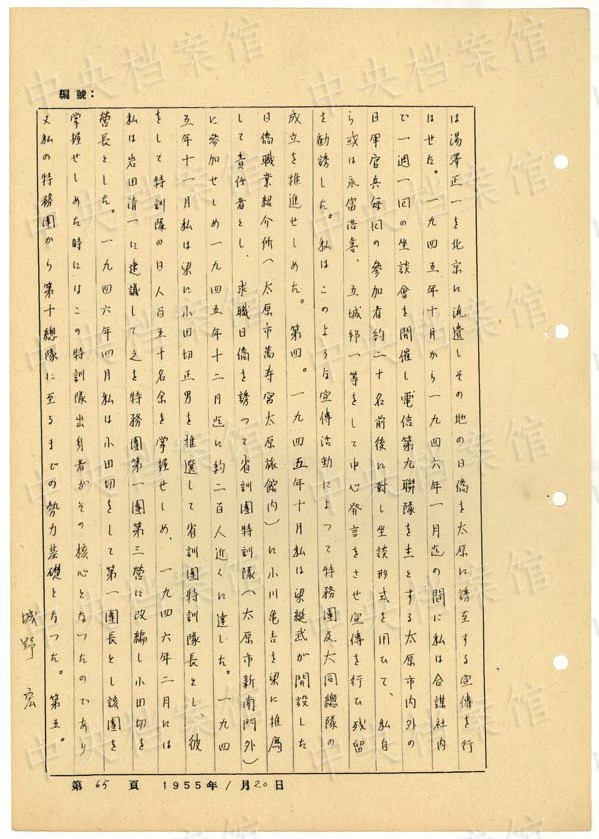 編號：
は湯澤正一を北京に派遣しその地の日僑を太原に誘至する宣傳を行
はせた。一九四五年十月から一九四六年一月迄の間に私は合謀社内
で一週一回の坐談會を開催し電信第九聯隊を主とする太原市内外の
日軍官兵每回の參加者約二十名前後に対し坐談形式を用ひて、私自
ら或は永富浩喜、五城邻一等をして中心発言をさせ宣傳を行ひ残留
を勧誘した。私はこのような宣傳活動によつて特務團及大同總隊の
成立を推進せしめた。第四。一九四五年十月私は梁綖武が開設した
日僑職業紹介所（太原市萬寿宮太原旅館内）に小川亀吉を梁に推薦
して責任者とし、求職日僑を誘つて省訓團特訓隊（太原市新南門外）
に参加せしめ一九四五年十二月迄に約二百人近くに達した。一九四
五年十一月私は梁に小田切正男を推選して省訓團特訓隊長とし、彼
をして特訓隊の日人百五十名余を掌握せしめ、一九四六年二月には
私は岩田清一に建議して之を特務團第一團第三營に改編し小田切を
營長とした。一九四六年四月私は小田切をして第一團長とし該團を
掌握せしめた時にはこの特訓隊出身者がその核心となつたのであり
又私の特務團から第十總隊に至るまでの勢力基礎となつた。第五。
城野 宏
第 65 頁 1955年 1月20日
中央档案馆